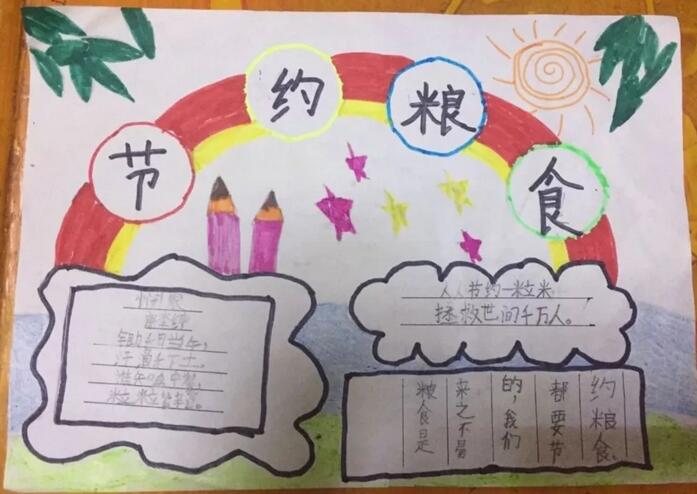 节约粮食
唐李绅
锄禾日当午,
汗滴禾下土。
谁知盘中餐,
粒粒皆辛苦。
人人节约一粒米,
拯救世间千万人。
粮食是
来之不易
的,我们
都要节
约粮食。